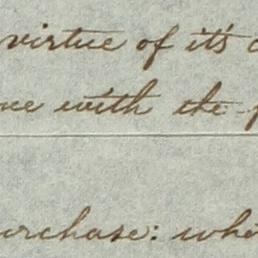 virtue of it's
with the
urchase: whe